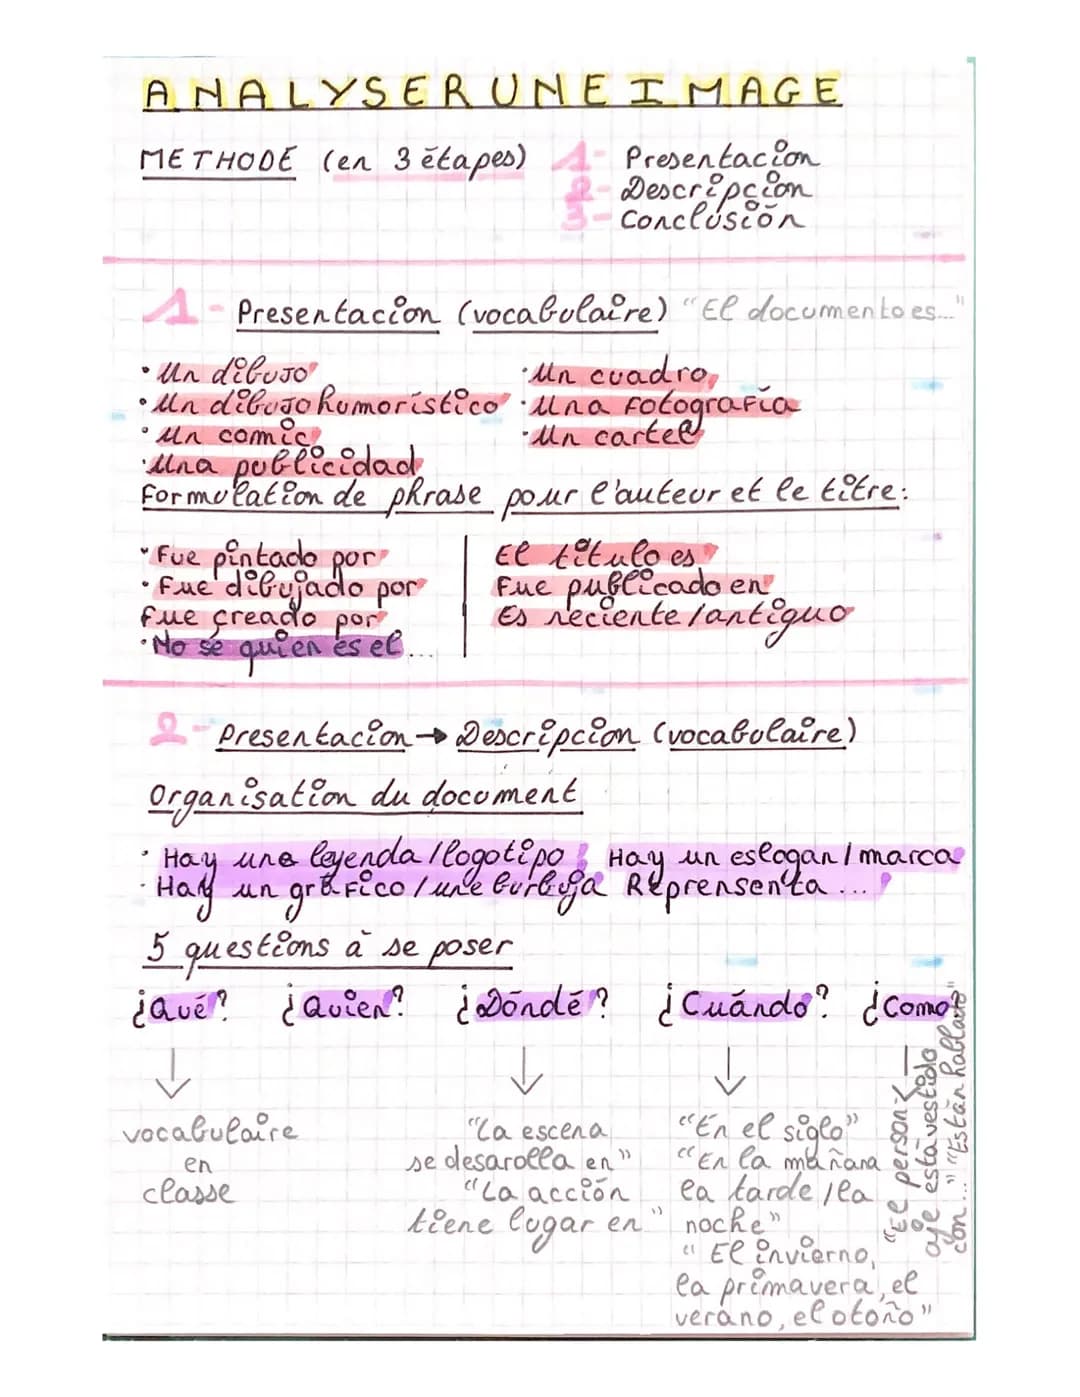 ANALYSER UNE IMAGE
METHODE (en 3 étapes) 1- Presentacion
2- Descripcion
3- Conclusión
1- Presentacion (vocabulaire) "El documento es..."
· Un dibujo · Un cuadro
· Un dibujo humoristico · Una fotografia
· Un comic · Un cartel
· Una publicidad
Formulation de phrase pour l'auteur et le titre:
· Fue pintado por El titulo es
· Fue dibujado por Fue publicado en
fue creado por Es reciente / antiguo
· No se quien es el ...
2- Presentacion → Descripcion (vocabulaire)
Organisation du document
· Hay une leyenda / logotipo ; Hay un eslogan / marca
· Hay un gráfico / une burbuja Reprensenta ...
5 questions à se poser
¿Qué? ¿Quien? ¿Dóndé? ¿Cuándo? ¿Como?
vocabulaire
en
classe
"La escena
se desarolla en"
"La acción
tiene lugar en"
"En el siglo"
"En la mañana
la tarde / la
noche"
"El invierno,
la primavera, el
verano, el otoño"
"El person-
aje está vestido
con..." "Están hablano"